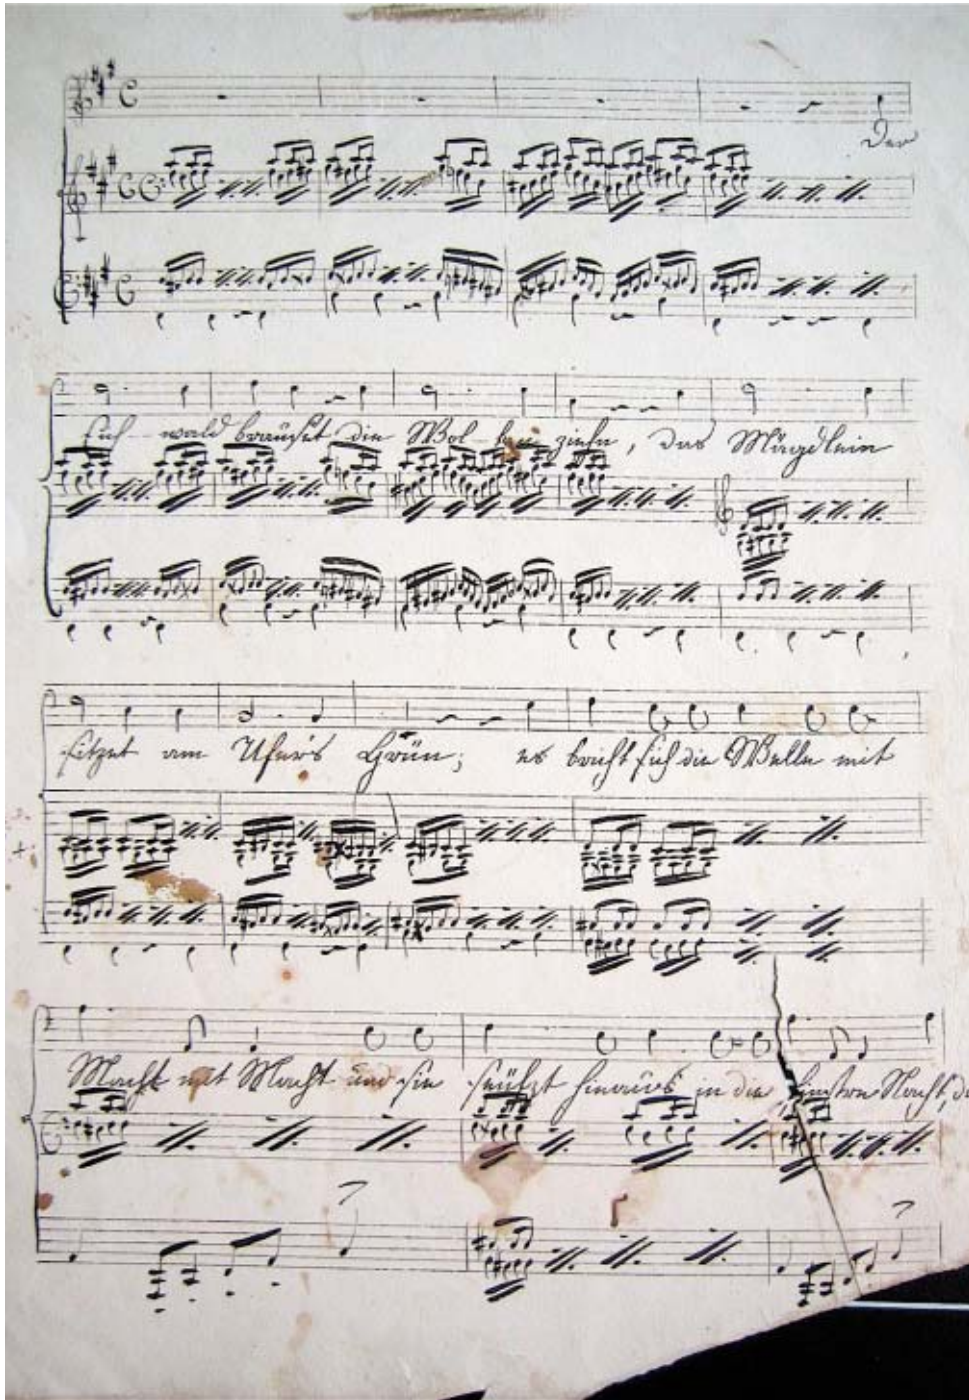 Der
Eich wald brauset die Wol ken ziehn, das Mägdlein
sitzet am Ufers Grün; es bricht sich die Welle mit
Macht mit Macht und sie seufzt hinaus in die finstre Nacht, d